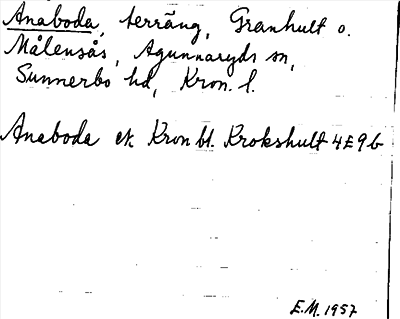 Anaboda, terräng, Granhult o.
Målensås, Agunnaryds sn,
Sunnerbo hd, Kron. l.
Anaboda ek Kron bl. Krokshult 4E9b
E.M. 1957